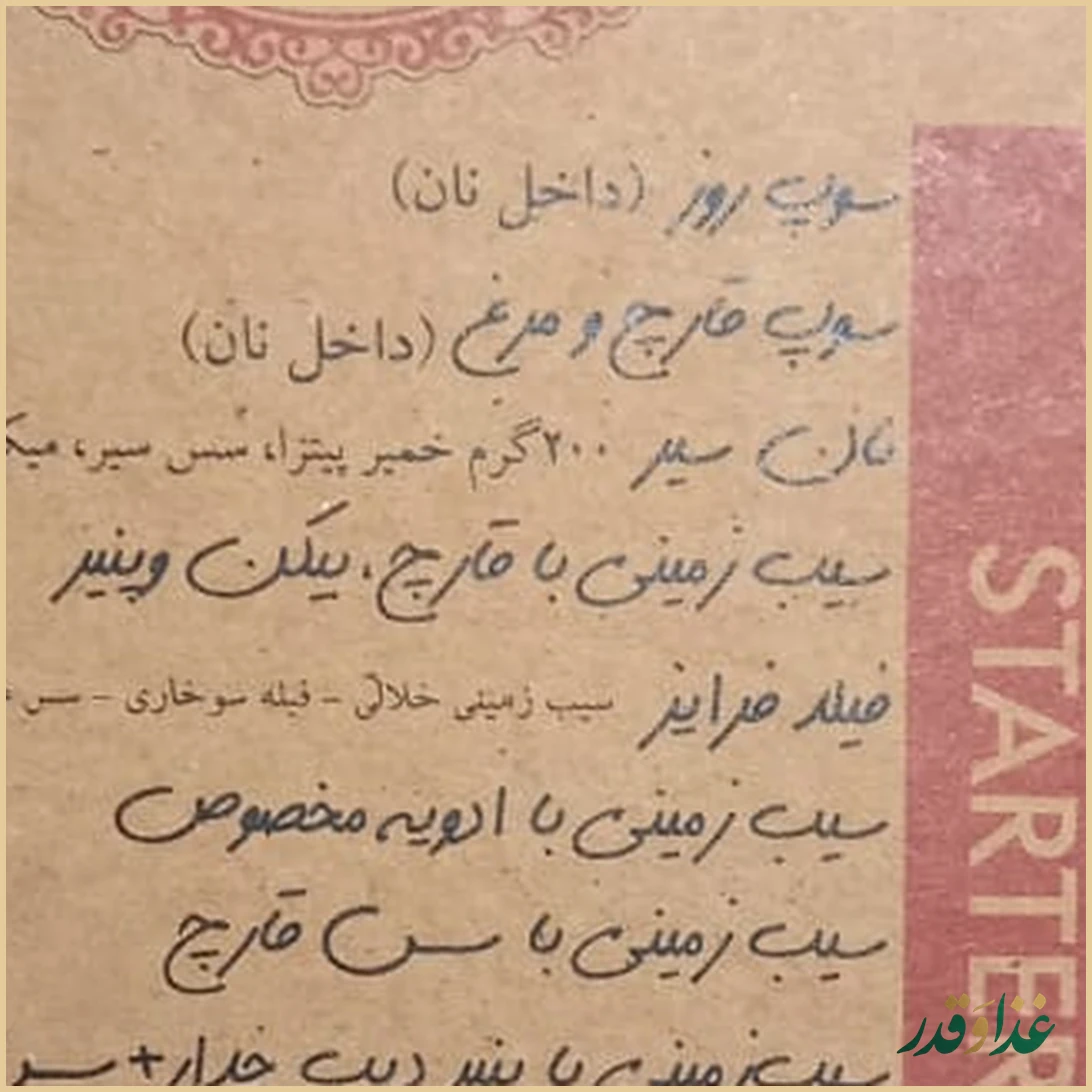 سوپ روز (داخل نان)
سوپ قارچ و مرغ (داخل نان)
نان سیر ۲۰۰گرم خمیر پیتزا، سس سیر،
سیب زمینی با قارچ، بیکن و پنیر
فیله فرایز سیب زمینی خلالی - فیله سوخاری - سس
سیب زمینی با ادویه مخصوص
سیب زمینی با سس قارچ
سیب زمینی با پنیر دیپ چدار+
STARTER
غذا و قدر